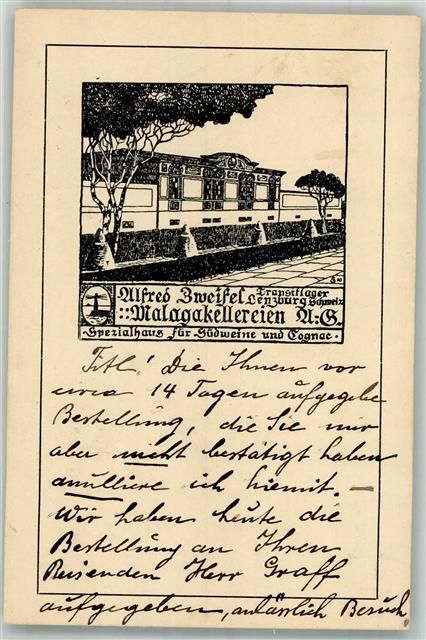 Alfred Zweifel Transitlager
Lenzburg Schweiz
::Malagakellereien A:G.
·Spezialhaus für Südweine und Cognac·
Titl! Die Ihnen vor
circa 14 Tagen aufgegebe
Bestellung, die Sie mir
aber nicht bestätigt haben
anulliere ich hiemit. —
Wir haben heute die
Bestellung an Ihren
Reisenden Herr Graff
aufgegeben, anlässlich Besuch